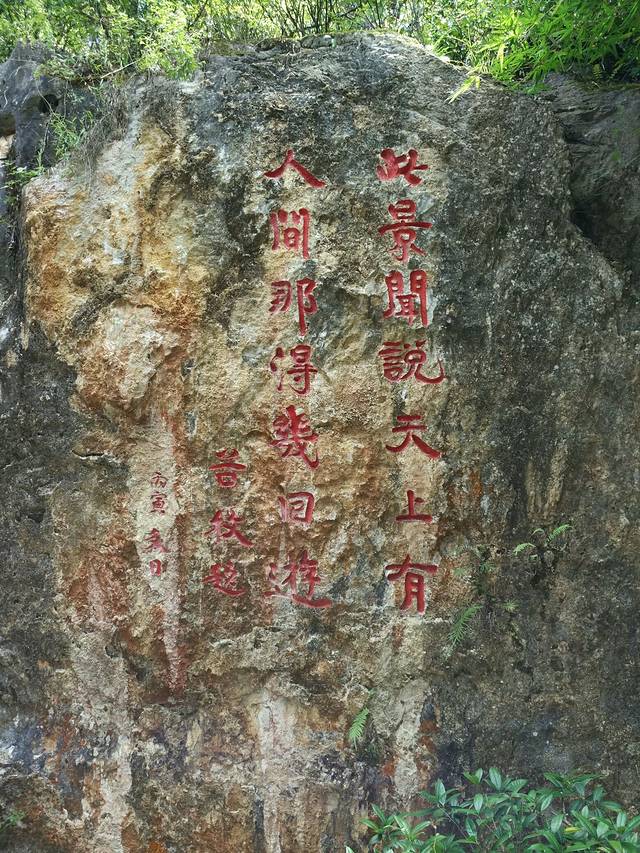 此景聞說天上有
人間那得幾回遊
題
丙寅夏日